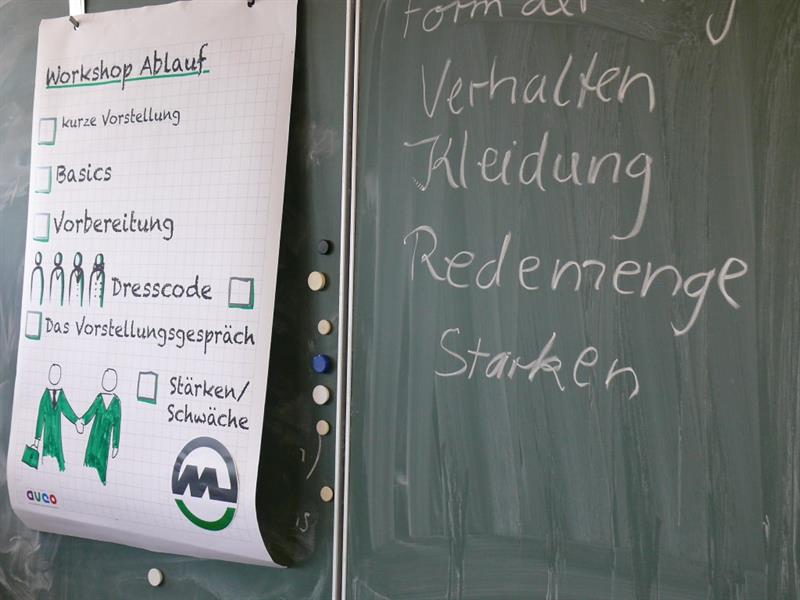 Workshop Ablauf
kurze Vorstellung
Basics
Vorbereitung
Dresscode
Das Vorstellungsgespräch
Stärken/
Schwäche
auco
Form der
Verhalten
Kleidung
Redemenge
Starken